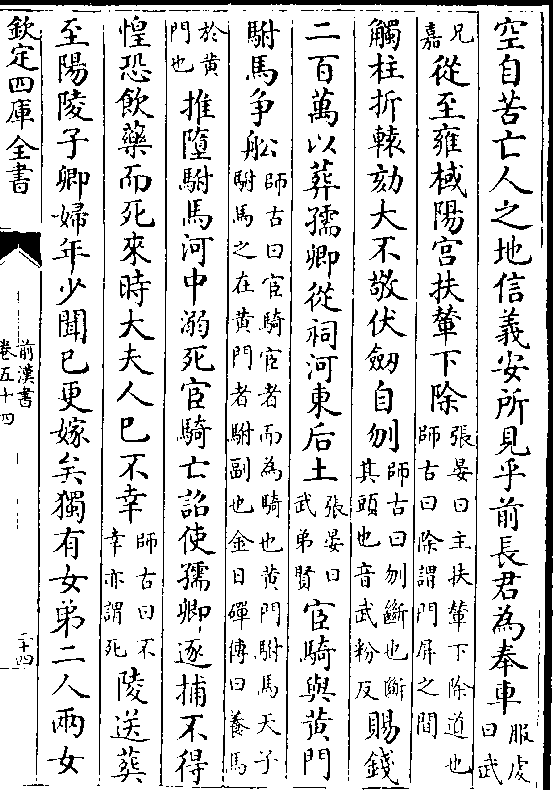 空自苦亡人之地信義安所見乎前長君為奉車服虔曰武
兄嘉從至雍棫陽宮扶輦下除張晏曰主扶輦下除道也師古曰除謂門屏之間
觸柱折轅劾大不敬伏劒自刎師古曰刎斷也斷其頭也音武粉反賜錢
二百萬以葬孺卿從祠河東后土張晏曰武弟賢宦騎與黄門
駙馬争舩師古曰宦騎宦者而為騎也黄門駙馬天子駙馬之在黄門者駙副也金日磾傳曰養馬
於黄門也推墮駙馬河中溺死宦騎亡詔使孺卿逐捕不得
惶恐飲藥而死來時大夫人已不幸師古曰不幸亦謂死陵送葬
至陽陵子卿婦年少聞已更嫁矣獨有女弟二人兩女
欽定四庫全書
前漢書
卷五十四
二十四